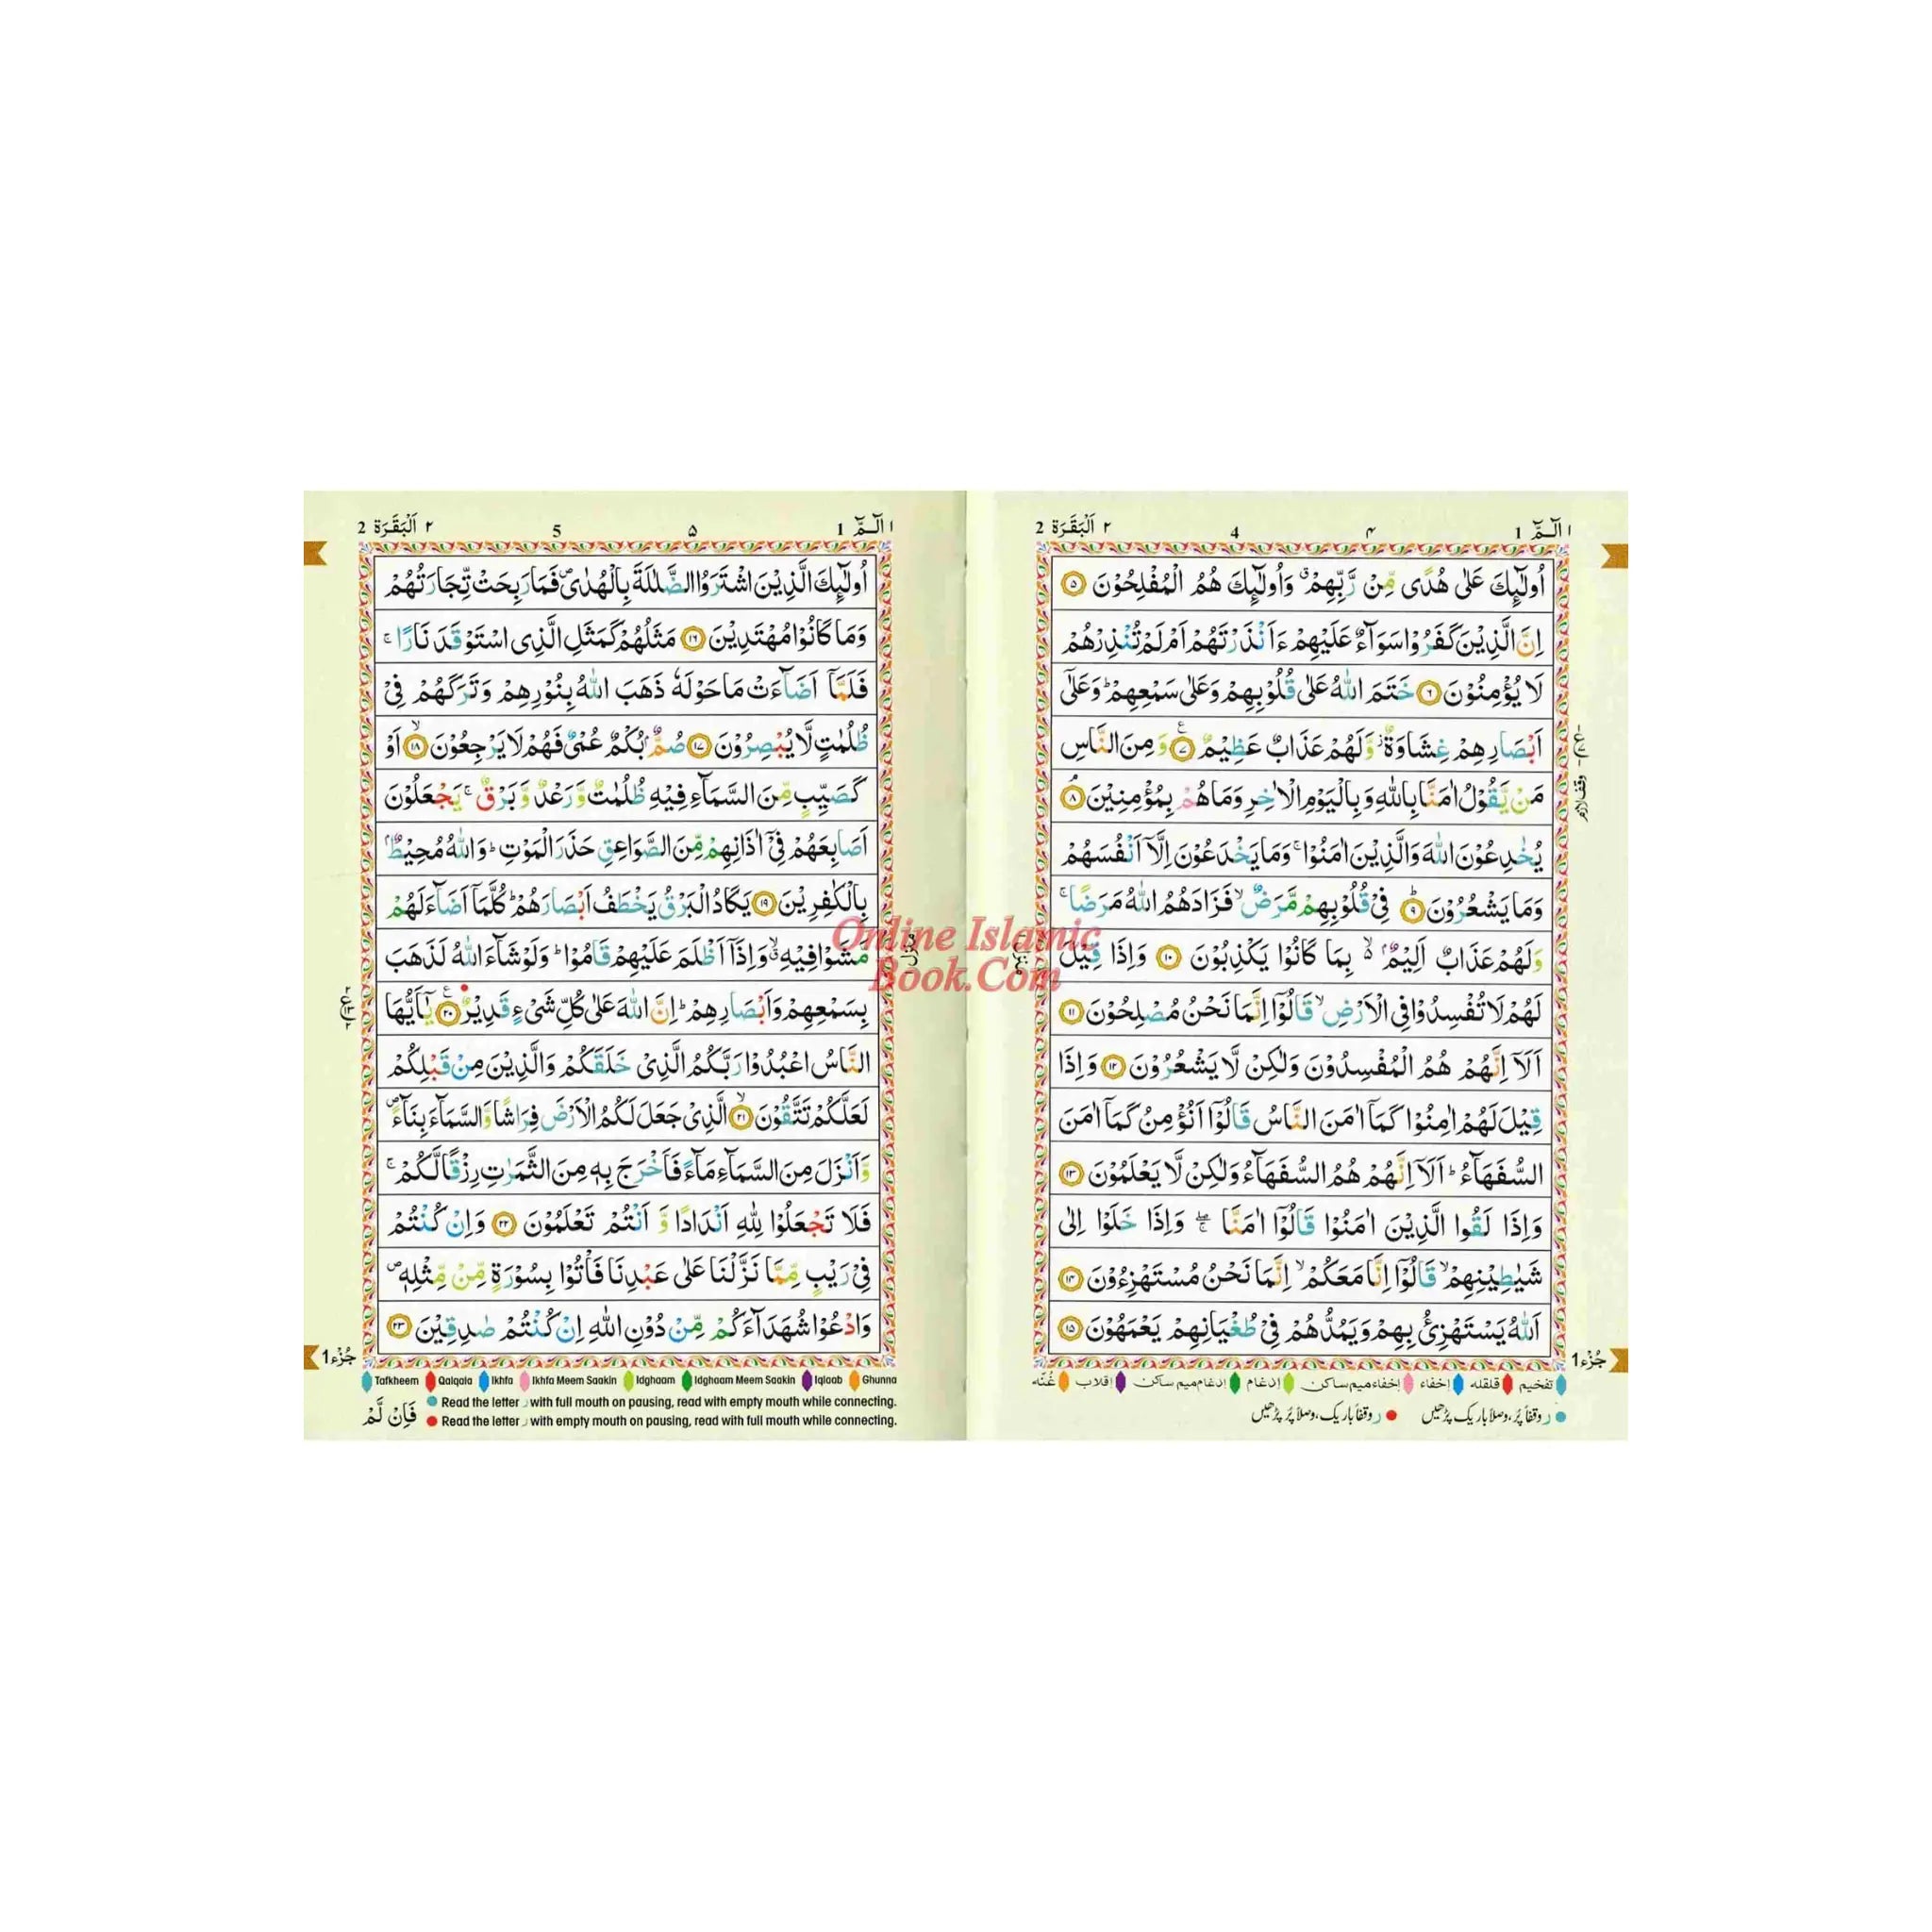 ١ الٓـمّٓ 1 ۴ 4 ٢ اَلْبَقَرَة 2
اُولٰٓئِكَ عَلٰى هُدًى مِّنْ رَّبِّهِمْ ۗ وَاُولٰٓئِكَ هُمُ الْمُفْلِحُوْنَ ۝٥
اِنَّ الَّذِيْنَ كَفَرُوْا سَوَآءٌ عَلَيْهِمْ ءَاَنْذَرْتَهُمْ اَمْ لَمْ تُنْذِرْهُمْ
لَا يُؤْمِنُوْنَ ۝٦ خَتَمَ اللّٰهُ عَلٰى قُلُوْبِهِمْ وَعَلٰى سَمْعِهِمْ ؕ وَعَلٰٓى
اَبْصَارِهِمْ غِشَاوَةٌ ؗ وَّلَهُمْ عَذَابٌ عَظِيْمٌ ۝٧ وَمِنَ النَّاسِ
مَنْ يَّقُوْلُ اٰمَنَّا بِاللّٰهِ وَبِالْيَوْمِ الْاٰخِرِ وَمَا هُمْ بِمُؤْمِنِيْنَ ۝٨
يُخٰدِعُوْنَ اللّٰهَ وَالَّذِيْنَ اٰمَنُوْا ۚ وَمَا يَخْدَعُوْنَ اِلَّآ اَنْفُسَهُمْ
وَمَا يَشْعُرُوْنَ ۝٩ فِيْ قُلُوْبِهِمْ مَّرَضٌ ۙ فَزَادَهُمُ اللّٰهُ مَرَضًا ۚ
وَلَهُمْ عَذَابٌ اَلِيْمٌۢ ۙ بِمَا كَانُوْا يَكْذِبُوْنَ ۝١٠ وَاِذَا قِيْلَ
لَهُمْ لَا تُفْسِدُوْا فِى الْاَرْضِ ۙ قَالُوْٓا اِنَّمَا نَحْنُ مُصْلِحُوْنَ ۝١١
اَلَآ اِنَّهُمْ هُمُ الْمُفْسِدُوْنَ وَلٰكِنْ لَّا يَشْعُرُوْنَ ۝١٢ وَاِذَا
قِيْلَ لَهُمْ اٰمِنُوْا كَمَآ اٰمَنَ النَّاسُ قَالُوْٓا اَنُؤْمِنُ كَمَآ اٰمَنَ
السُّفَهَآءُ ؕ اَلَآ اِنَّهُمْ هُمُ السُّفَهَآءُ وَلٰكِنْ لَّا يَعْلَمُوْنَ ۝١٣
وَاِذَا لَقُوا الَّذِيْنَ اٰمَنُوْا قَالُوْٓا اٰمَنَّا ۖۚ وَاِذَا خَلَوْا اِلٰى
شَيٰطِيْنِهِمْ ۙ قَالُوْٓا اِنَّا مَعَكُمْ ۙ اِنَّمَا نَحْنُ مُسْتَهْزِءُوْنَ ۝١٤
اَللّٰهُ يَسْتَهْزِئُ بِهِمْ وَيَمُدُّهُمْ فِيْ طُغْيَانِهِمْ يَعْمَهُوْنَ ۝١٥
وقف لازم
جُزْء 1
تفخیم قلقله إخفاء إخفاء میم ساکن إدغام إدغام میم ساکن إقلاب غُنّه
ر وقفاً پُر، وصلاً باریک پڑھیں ر وقفاً باریک، وصلاً پُر پڑھیں
١ الٓـمّٓ 1 ۵ 5 ٢ اَلْبَقَرَة 2
اُولٰٓئِكَ الَّذِيْنَ اشْتَرَوُا الضَّلٰلَةَ بِالْهُدٰى ۪ فَمَا رَبِحَتْ تِّجَارَتُهُمْ
وَمَا كَانُوْا مُهْتَدِيْنَ ۝١٦ مَثَلُهُمْ كَمَثَلِ الَّذِى اسْتَوْقَدَ نَارًا ۚ
فَلَمَّآ اَضَآءَتْ مَا حَوْلَهٗ ذَهَبَ اللّٰهُ بِنُوْرِهِمْ وَتَرَكَهُمْ فِيْ
ظُلُمٰتٍ لَّا يُبْصِرُوْنَ ۝١٧ صُمٌّۢ بُكْمٌ عُمْيٌ فَهُمْ لَا يَرْجِعُوْنَ ۝١٨ اَوْ
كَصَيِّبٍ مِّنَ السَّمَآءِ فِيْهِ ظُلُمٰتٌ وَّرَعْدٌ وَّبَرْقٌ ۚ يَجْعَلُوْنَ
اَصَابِعَهُمْ فِيْٓ اٰذَانِهِمْ مِّنَ الصَّوَاعِقِ حَذَرَ الْمَوْتِ ؕ وَاللّٰهُ مُحِيْطٌۢ
بِالْكٰفِرِيْنَ ۝١٩ يَكَادُ الْبَرْقُ يَخْطَفُ اَبْصَارَهُمْ ؕ كُلَّمَآ اَضَآءَ لَهُمْ
مَّشَوْا فِيْهِ ۙ وَاِذَآ اَظْلَمَ عَلَيْهِمْ قَامُوْا ؕ وَلَوْ شَآءَ اللّٰهُ لَذَهَبَ
بِسَمْعِهِمْ وَاَبْصَارِهِمْ ؕ اِنَّ اللّٰهَ عَلٰى كُلِّ شَيْءٍ قَدِيْرٌ ۝٢٠ يٰٓاَيُّهَا
النَّاسُ اعْبُدُوْا رَبَّكُمُ الَّذِيْ خَلَقَكُمْ وَالَّذِيْنَ مِنْ قَبْلِكُمْ
لَعَلَّكُمْ تَتَّقُوْنَ ۝٢١ الَّذِيْ جَعَلَ لَكُمُ الْاَرْضَ فِرَاشًا وَّالسَّمَآءَ بِنَآءً ۪
وَّاَنْزَلَ مِنَ السَّمَآءِ مَآءً فَاَخْرَجَ بِهٖ مِنَ الثَّمَرٰتِ رِزْقًا لَّكُمْ ۚ
فَلَا تَجْعَلُوْا لِلّٰهِ اَنْدَادًا وَّ اَنْتُمْ تَعْلَمُوْنَ ۝٢٢ وَاِنْ كُنْتُمْ
فِيْ رَيْبٍ مِّمَّا نَزَّلْنَا عَلٰى عَبْدِنَا فَاْتُوْا بِسُوْرَةٍ مِّنْ مِّثْلِهٖ ۪
وَادْعُوْا شُهَدَآءَكُمْ مِّنْ دُوْنِ اللّٰهِ اِنْ كُنْتُمْ صٰدِقِيْنَ ۝٢٣
منزل ١
جُزْء 1
Tafkheem Qalqala Ikhfa Ikhfa Meem Saakin Idghaam Idghaam Meem Saakin Iqlaab Ghunna
Read the letter ر with full mouth on pausing, read with empty mouth while connecting.
Read the letter ر with empty mouth on pausing, read with full mouth while connecting.
فَاِنْ لَّمْ
Online Islamic
Book.Com